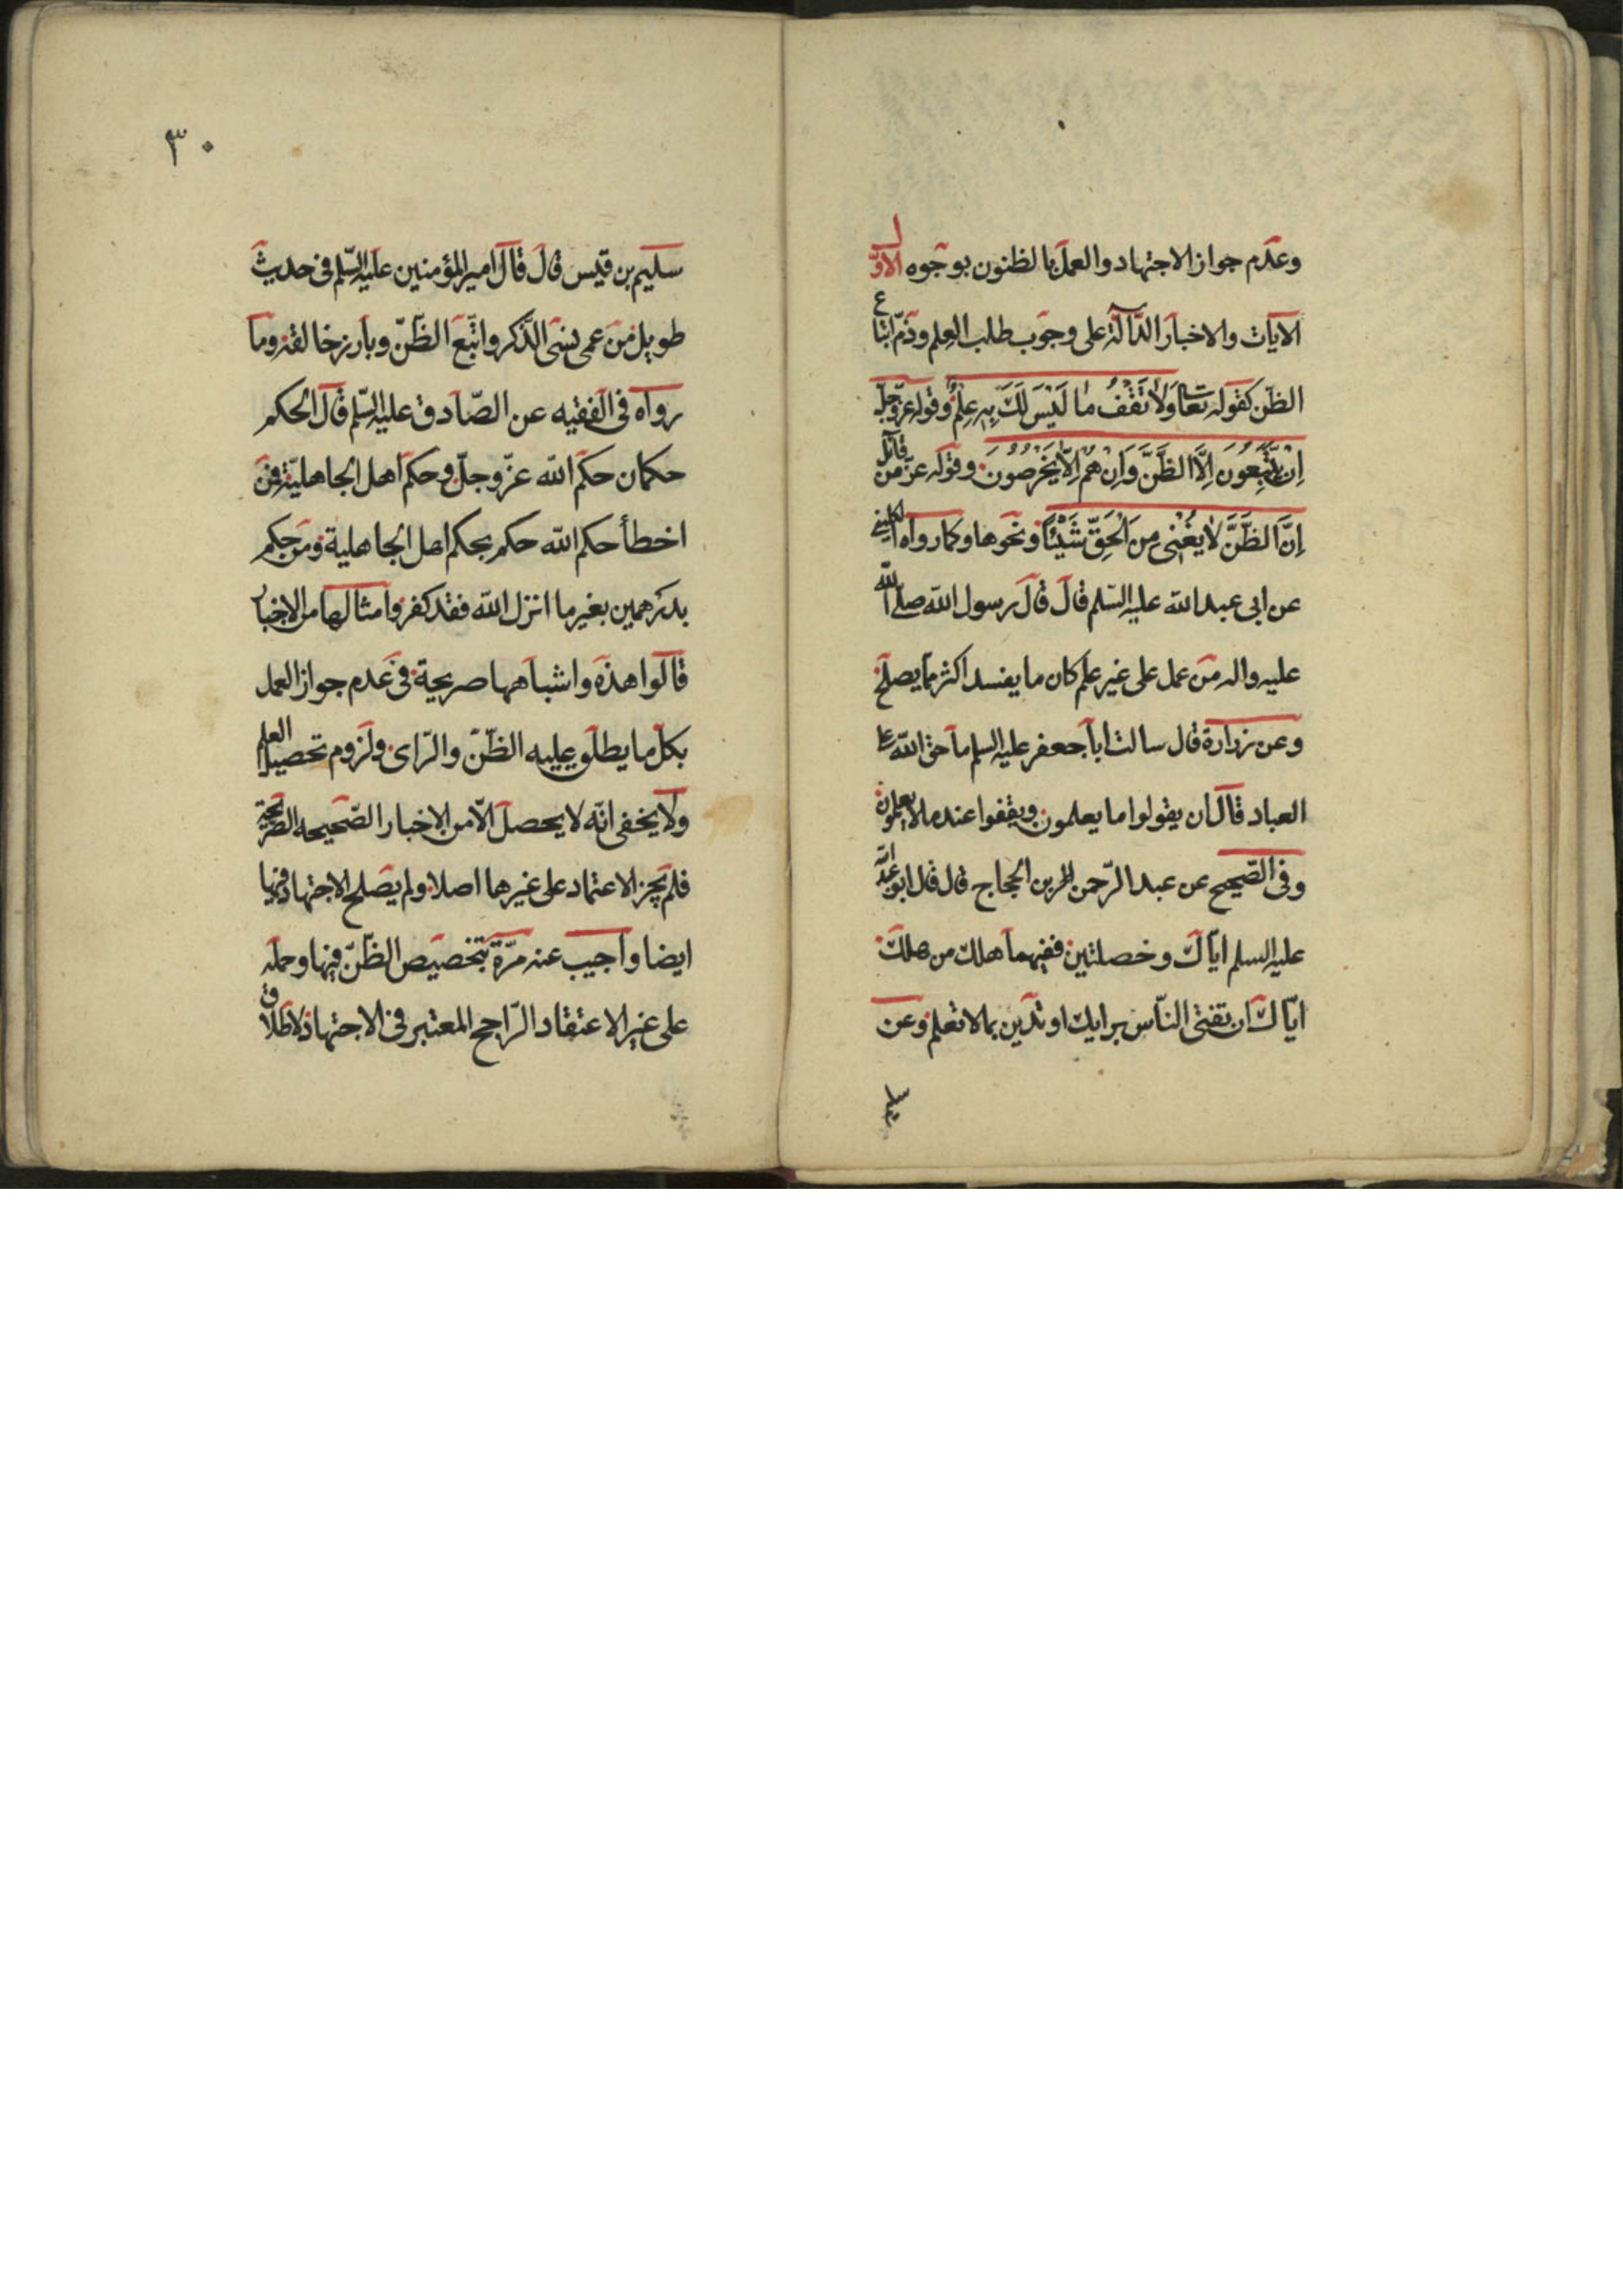 وعدم جواز الاجتهاد والعمل بالظنون بوجوه الاول
الآيات والاخبار الدّالّة على وجوب طلب العلم وذمّ اتباع
الظن كقوله تعا وَلا تَقْفُ ما لَيْسَ لَكَ بِهِ عِلْمٌ وقوله عزّ وجلّ
اِنْ يَتَّبِعُونَ اِلَّا الظَّنَّ وَاِنْ هُمْ اِلّا يَخْرُصُونَ وقوله عزّ من قائل
اِنَّ الظَّنَّ لا يُغْنِى مِنَ الْحَقِّ شَيْئاً ونحوها وكما رواه الكلينى
عن ابى عبد الله عليه السّلم قال قال رسول الله صلى الله
عليه واله من عمل على غير علم كان ما يفسد اكثر مما يصلح
وعن زرارة قال سالت ابا جعفر عليه السلم ما حق الله على
العباد قال ان يقولوا ما يعلمون ويقفوا عند ما لا يعلمون
وفى الصّحيح عن عبد الرّحمن بن الحجاج قال قال ابو عبد الله
عليه السلم ايّاك وخصلتين ففيهما هلك من هلك
ايّاك ان تفتى النّاس برايك او تدين بما لا تعلم وعن
٣٠
سليم بن قيس قال قال امير المؤمنين عليه السّلم فى حديث
طويل من عمى نسى الذّكر واتّبع الظّنّ وبارز خالقه وما
رواه فى الفقيه عن الصّادق عليه السّلم قال الحكم
حكمان حكم الله عزّ وجلّ وحكم اهل الجاهليّة فمن
اخطأ حكم الله حكم بحكم اهل الجاهلية ومن حكم
بدرهمين بغير ما انزل الله فقد كفر وامثالها من الاخبار
قالوا هذه واشباهها صريحة فى عدم جواز العمل
بكل ما يطلق عليه الظّنّ والرّاى ولزوم تحصيل العلم
ولا يخفى انّه لا يحصل الّا من الاخبار الصّحيحه الصّريحة
فلم يجز الاعتماد على غيرها اصلا ولم يصلح الاجتهاد فيها
ايضا واجيب عنه مرّة بتخصيص الظّنّ فيها وحمله
على غير الاعتقاد الرّاجح المعتبر فى الاجتهاد لاطلاق